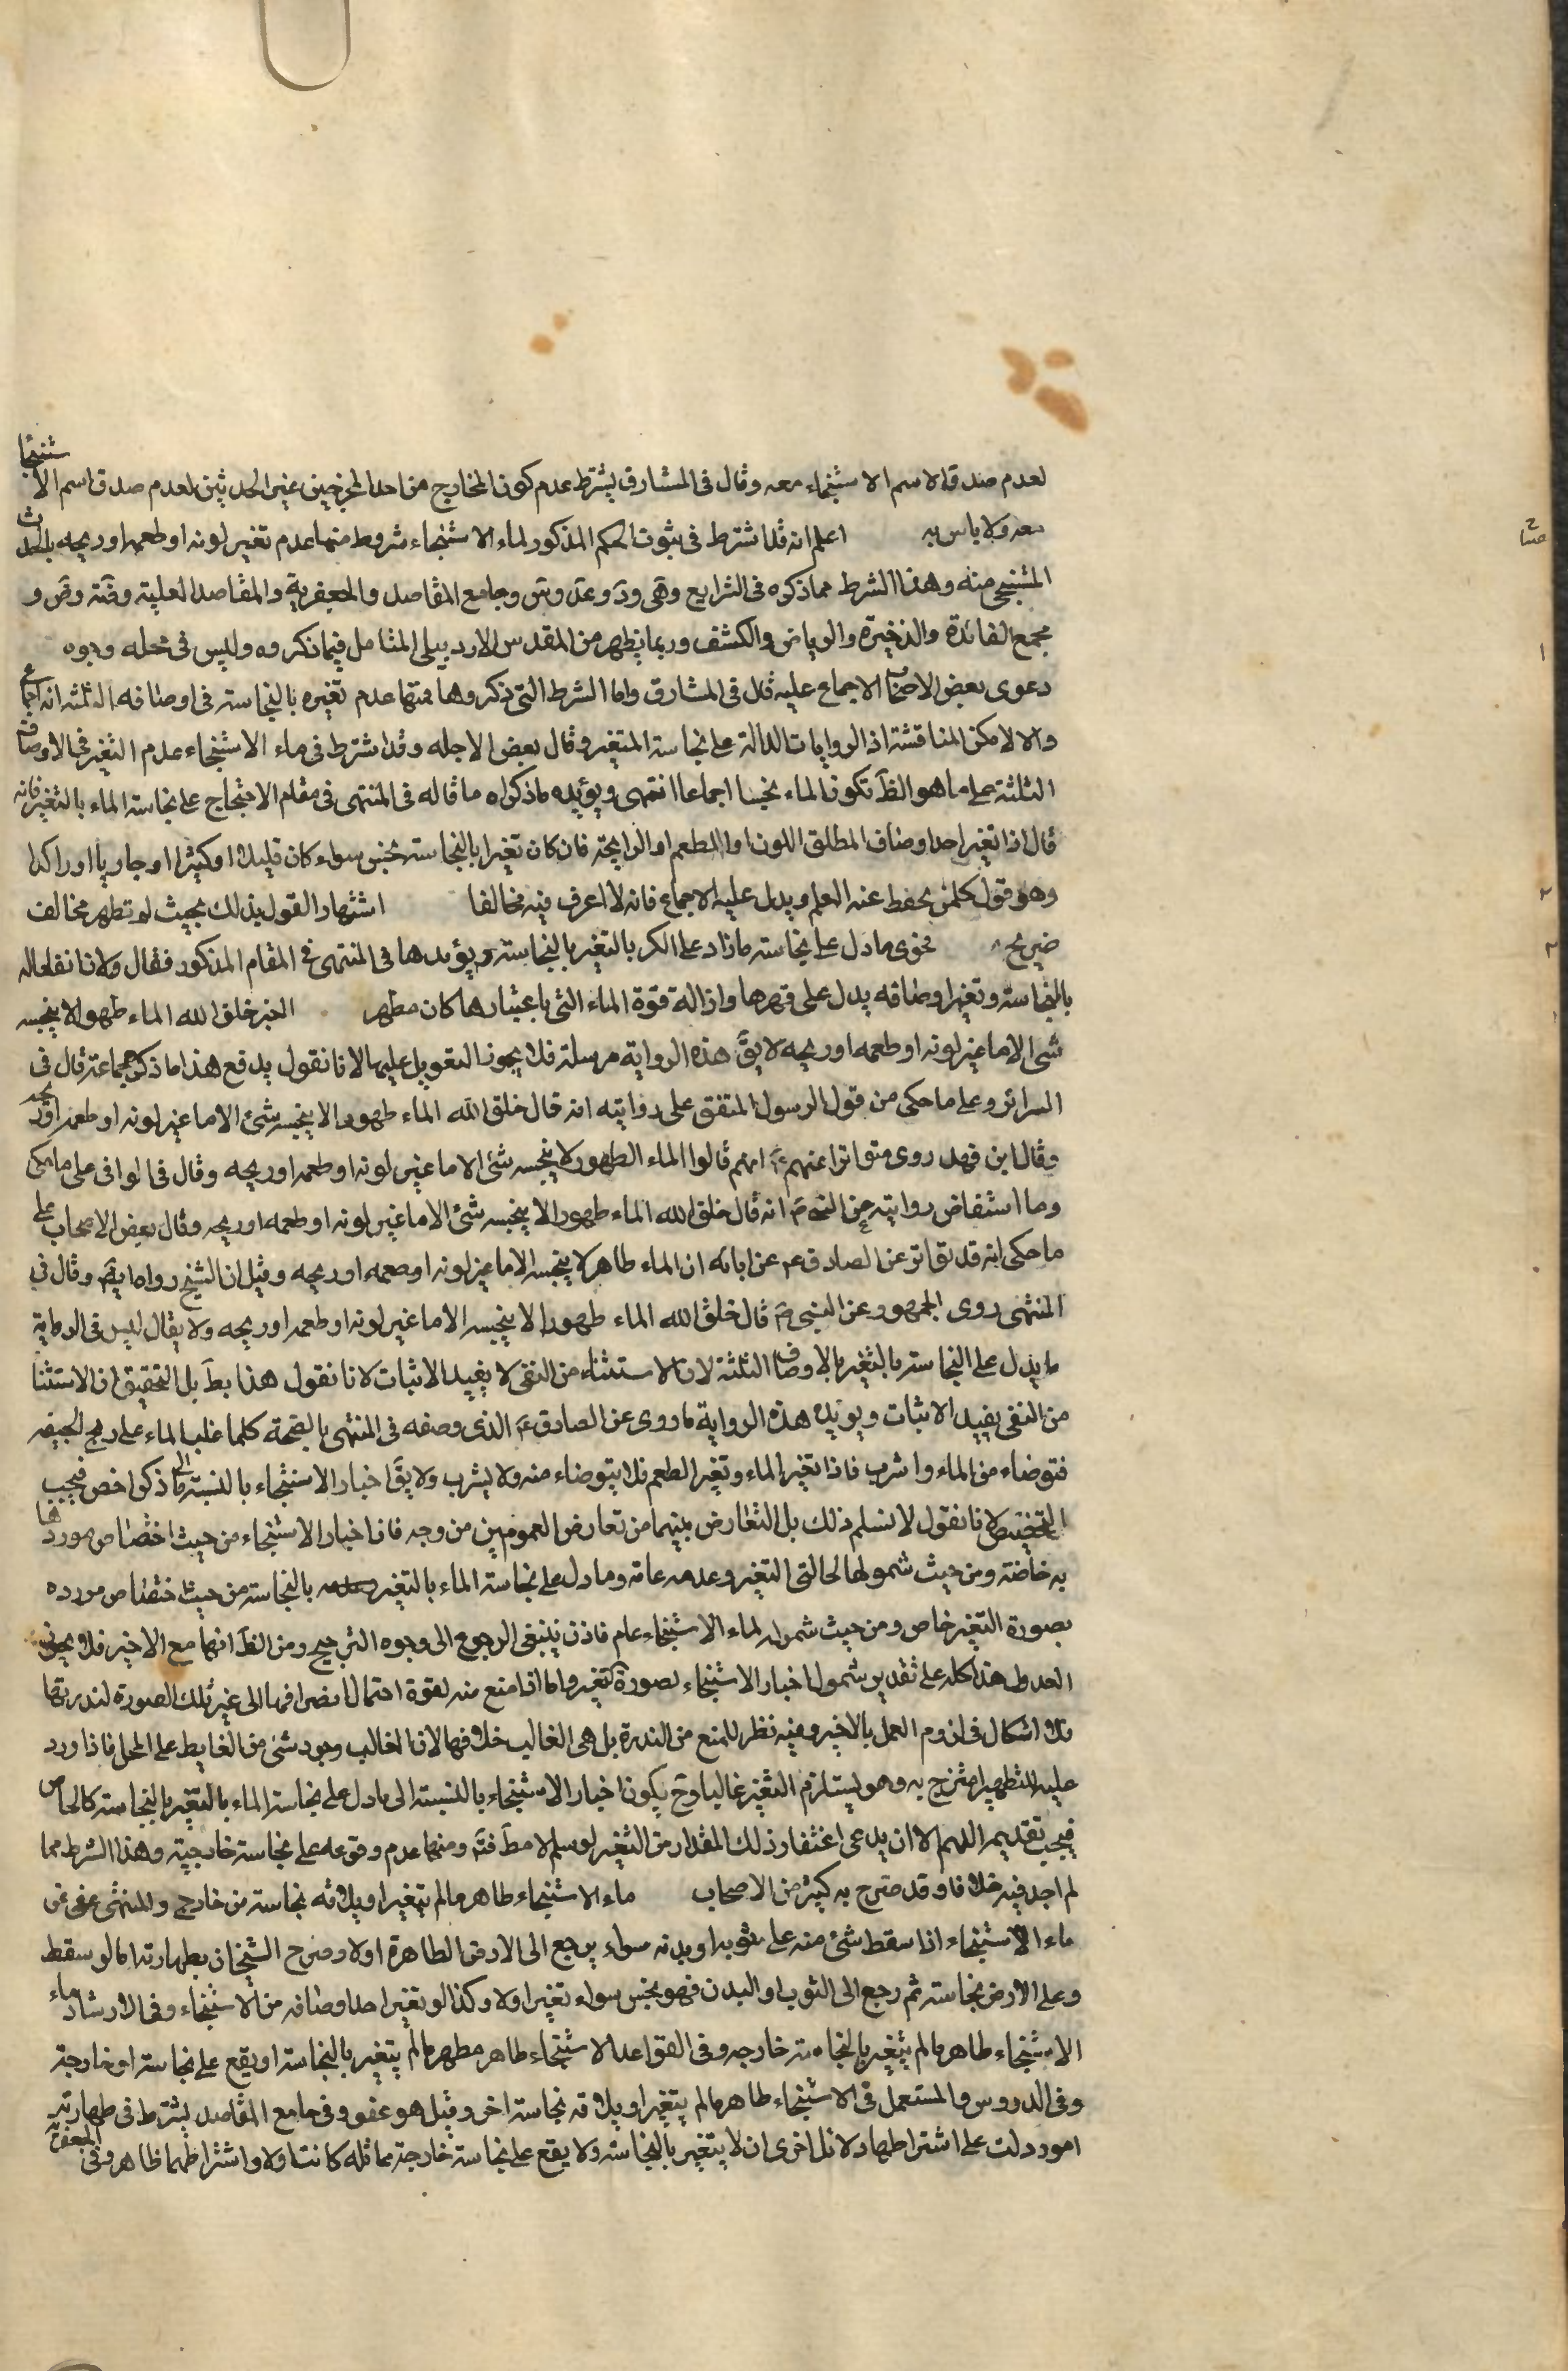 لعدم صدق الاسم الاستنجاء معه وقال في المشارق يشترط عدم كون الخارج من احد المخرجين غير الحدثين لعدم صدق اسم الاستنجا
معه ولا باس به اعلم انه قد اشترط في ثبوت الحكم المذكور لماء الاستنجاء شروط منها عدم تغير لونه او طعمه او ريحه بالحدث
المستنجى منه وهذا الشرط مما ذكره في الشرايع وهى ود وعد وس وجامع المقاصد والجعفرية والمقاصد العلية وضه وض و
مجمع الفائدة والذخيرة والرياض والكشف وربما يظهر من المقدس الاردبيلى التامل فيما ذكروه وليس في محله وجوه
دعوى بعض الاصحاب الاجماع عليه قال في المشارق واما الشرط التى ذكروها فمنها عدم تغيره بالنجاسة في اوصافه الثلثة انه اجماع
والا لامكن المناقشة اذ الروايات الدالة على نجاسة المتغير وقال بعض الاجله وقد اشترط في ماء الاستنجاء عدم التغير في الاوصاف
الثلثة على ما هو الظ تكون الماء نجسا اجماعا انتهى ويؤيده ما ذكراه ما قاله في المنتهى في مقام الاحتجاج على نجاسة الماء بالتغير فانه
قال اذا تغير احد اوصاف المطلق اللون او الطعم او الرايحة فان كان تغيرا بالنجاسة نجس سواء كان قليلا او كثيرا او جاريا او راكدا
وهو قول كلمن يحفظ عنه العلم ويدل عليه الاجماع فانه لا اعرف فيه مخالفا اشتهار القول بذلك بحيث لو تظهر مخالف
صريح فحوى ما دل على نجاسة ما زاد على الكر بالتغير بالنجاسة ويؤيدها في المنتهى في المقام المذكور فقال ولان انفعاله
بالنجاسة وتغير اوصافه يدل على قهرها وازالة قوة الماء التى باعتبارها كان مطهر الخبر خلق الله الماء طهورا لا ينجسه
شئ الا ما غير لونه او طعمه او ريحه لا يق هذه الرواية مرسلة فلا يجوز التعويل عليها لانا نقول يدفع هذا ما ذكره جماعة قال في
السرائر وعلى ما حكى من قول الرسول المتفق على روايته انه قال خلق الله الماء طهورا لا ينجسه شئ الا ما غير لونه او طعمه او ريحه
وقال ابن فهد روى متواترا عنهم ع انهم قالوا الماء الطهور لا ينجسه شئ الا ما غير لونه او طعمه او ريحه وقال في الوافى على ما حكى
وما استفاض روايته عن النبى ص انه قال خلق الله الماء طهورا لا ينجسه شئ الا ما غير لونه او طعمه او ريحه وقال بعض الاصحاب على
ما حكى انه قد تواتر عن الصادق ع عن ابائه ان الماء طاهر لا ينجسه الا ما غير لونه او طعمه او ريحه وقيل ان الشيخ رواه ايض وقال في
المنتهى روى الجمهور عن النبى ص قال خلق الله الماء طهورا لا ينجسه الا ما غير لونه او طعمه او ريحه ولا يقال ليس في الرواية
ما يدل على النجاسة بالتغير بالاوصاف الثلثة لان الاستثناء من النفى لا يفيد الاثبات لانا نقول هذا بط بل التحقيق ان الاستثنا
من النفى يفيد الاثبات ويؤيد هذه الرواية ما روى عن الصادق ع الذى وصفه في المنتهى بالصحة كلما غلب الماء على ريح الجيفه
فتوضاء من الماء واشرب فاذا تغير الماء وتغير الطعم فلا يتوضاء منه ولا يشرب ولا يق اخبار الاستنجاء بالنسبة الى ما ذكر اخص فيجب
التخصيص لانا نقول لا نسلم ذلك بل التعارض بينهما من تعارض العمومين من وجه فان اخبار الاستنجاء من حيث اختصاص موردها
به خاصة ومن حيث شمولها لحالتى التغير وعدمه عامة وما دل على نجاسة الماء بالتغير بالنجاسة من حيث اختصاص مورده
بصورة التغير خاص ومن حيث شموله لماء الاستنجاء عام فاذن ينبغى الرجوع الى وجوه الترجيح ومن الظ انها مع الاخير فلا يجوز
العدول هذا كله على تقدير شمول اخبار الاستنجاء لصورة التغير واما اذا منع منه لقوة احتمال انصرافها الى غير تلك الصورة لندرتها
فلا اشكال في لزوم العمل بالاخير وفيه نظر للمنع من الندرة بل هى الغالب خلافها لان الغالب وجود شئ من الغايط على المحل فاذا ورد
عليه للتطهير امتزج به وهو يستلزم التغير غالبا وح يكون اخبار الاستنجاء بالنسبة الى ما دل على نجاسة الماء بالتغير بالنجاسة كالخاص
فيجب تقديمه اللهم الا ان يدعى اغتفار ذلك المقدار من التغير لو سلم لا مط فتم ومنها عدم وقوعه على نجاسة خارجية وهذا الشرط مما
لم اجد فيه خلافا وقد صرح به كثير من الاصحاب ماء الاستنجاء طاهر ما لم يتغير او يلاقه نجاسة من خارج والمنتهى عفى عن
ماء الاستنجاء اذا سقط شئ منه على ثوبه او بدنه سواء رجع الى الارض الطاهرة اولا وصرح الشيخان بطهارته اما لو سقط
وعلى الارض نجاسة ثم رجع الى الثوب او البدن فهو نجس سواء تغير اولا وكذا لو تغير احد اوصافه من الاستنجاء وفى الارشاد ماء
الاستنجاء طاهر ما لم يتغير بالنجاسة خارجه وفى القواعد الاستنجاء طاهر مطهر ما لم يتغير بالنجاسة او يقع على نجاسة او خارجة
وفى الدروس والمستعمل في الاستنجاء طاهر ما لم يتغير او يلاقه نجاسة اخر وقيل هو عفو وفى جامع المقاصد يشترط في طهارته
امور دلت على اشتراطها دلائل اخرى ان لا يتغير بالنجاسة ولا يقع على نجاسة خارجة مماثله كانت اولا واشتراطهما ظاهر وفى الجعفرية